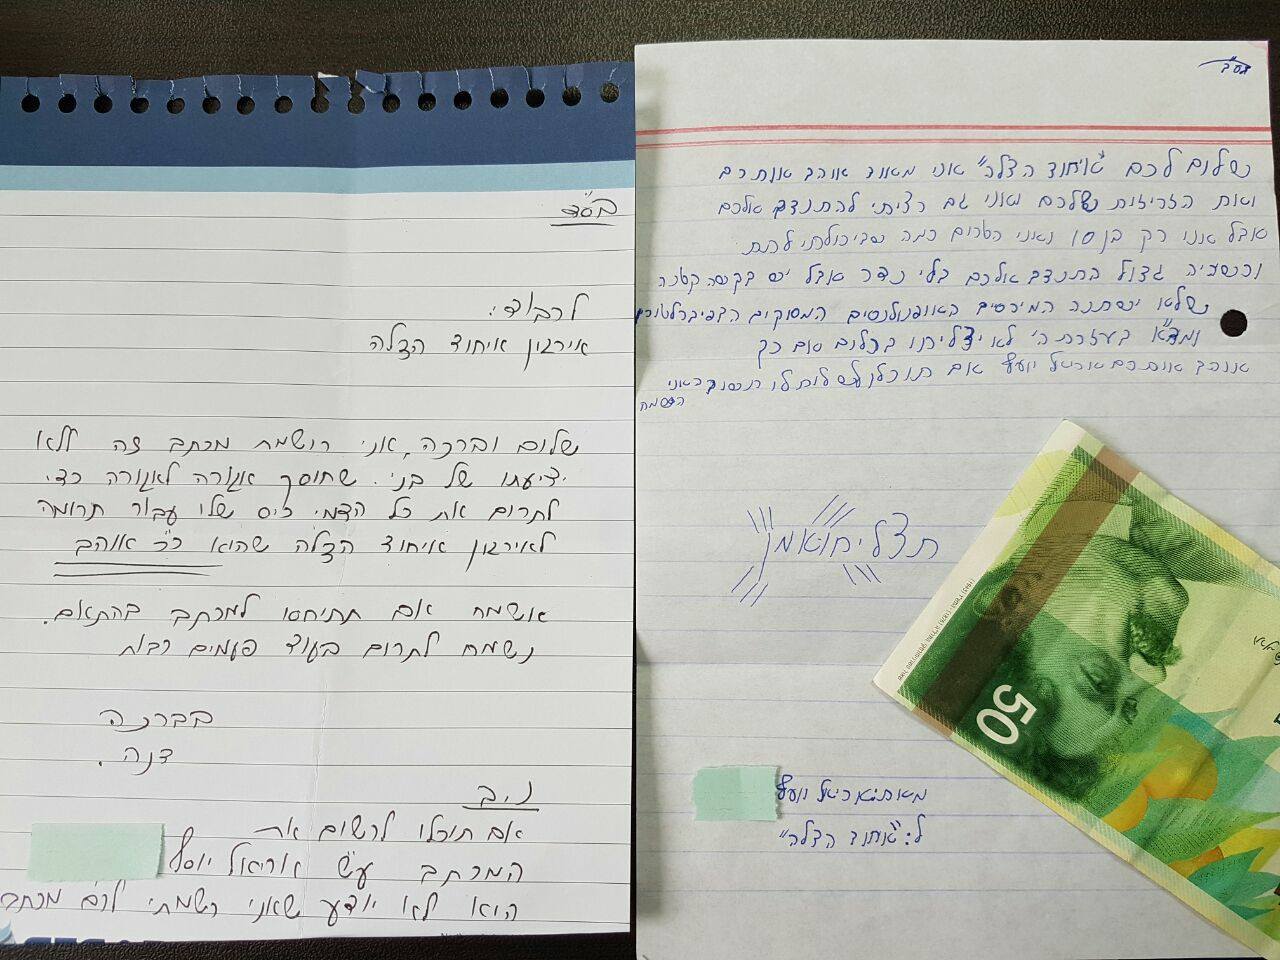 בס"ד
לכבוד:
אירגון איחוד הצלה
שלום וברכה, אני רושמת מכתב זה ללא
ידיעתו של בני. שחוסך אגורה לאגורה כדי
לתרום את כל הדמי כיס שלו עבור תרומה
לאירגון איחוד הצלה שהוא כ"כ אוהב
אשמח אם תתיחסו למכתב בהתאם.
נשמח לתרום בעוד פעמים רבות
בברכה
דנה.
נ.ב
אם תוכלו לרשום את
המכתב ע"ש אוריאל יוסף
הוא לא יודע שאני רשמתי לכם מכתב
בס"ד
שלום לכם "איחוד הצלה" אני מאוד אוהב אותכם
ואת הזריזות שלכם ואני גם רציתי להתנדב אלכם
אבל אני רק בן 10 ואני התרום כמה שביכולתי לתת
וכשעיה גדול התנדב אלכם בלי נדר אבל יש בקשה קטנה
שלא ישתנה המירסים האופנולנסים המסוקים
בעזרת ה' לא יצליחו בכלום סתם כך
אוהב אותכם אוריאל יוסף אם תוכלו לשלוח לי תשובה אני
אשמח
תצליחו אמן
מאת: אוריאל יוסף
ל: "איחוד הצלה"
50